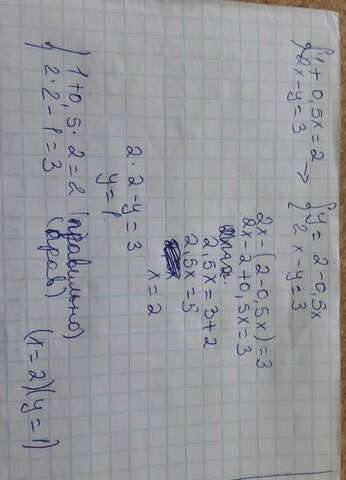 { y + 0,5x = 2
2x - y = 3
→
{ y = 2 - 0,5x
2x - y = 3
2x - (2 - 0,5x) = 3
2x - 2 + 0,5x = 3
2,5x = 3 + 2
2,5x = 5
x = 2
2 · 2 - y = 3
y = 1
{ 1 + 0,5 · 2 = 2 (правильно)
2 · 2 - 1 = 3
(x = 2) (y = 1)